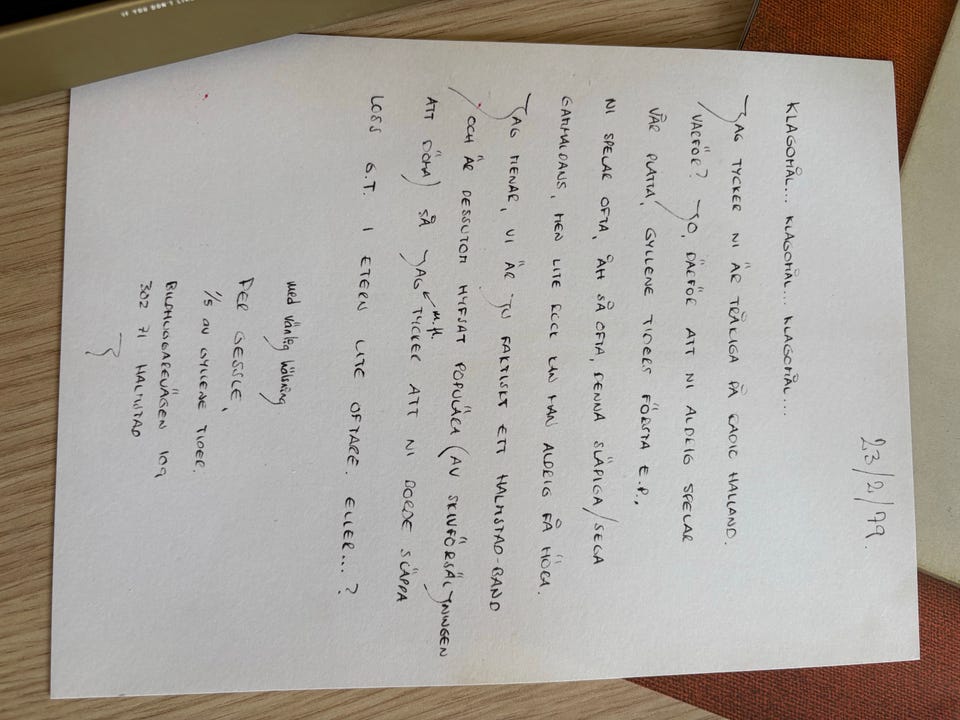 23/2/79.
KLAGOMÅL... KLAGOMÅL... KLAGOMÅL...
JAG TYCKER NI ÄR TRÅKIGA PÅ RADIO HALLAND.
VARFÖR? JO, DÄRFÖR ATT NI ALDRIG SPELAR
VÅR PLATTA, GYLLENE TIDERS FÖRSTA E.P.,
NI SPELAR OFTA, ÅH SÅ OFTA, DENNA SLÄPIGA/SEGA
GAMMALDANS, MEN LITE ROCK KAN MAN ALDRIG FÅ HÖRA.
JAG MENAR, VI ÄR JU FAKTISKT ETT HALMSTAD-BAND
OCH ÄR DESSUTOM HYFSAT POPULÄRA (AV SKIVFÖRSÄLJNINGEN
ATT DÖMA) SÅ JAG m.fl. TYCKER ATT NI BORDE SLÄPPA
LOSS G.T. I ETERN LITE OFTARE. ELLER...?
med vänlig hälsning
PER GESSLE,
1/5 av GYLLENE TIDER.
302 71 HALMSTAD